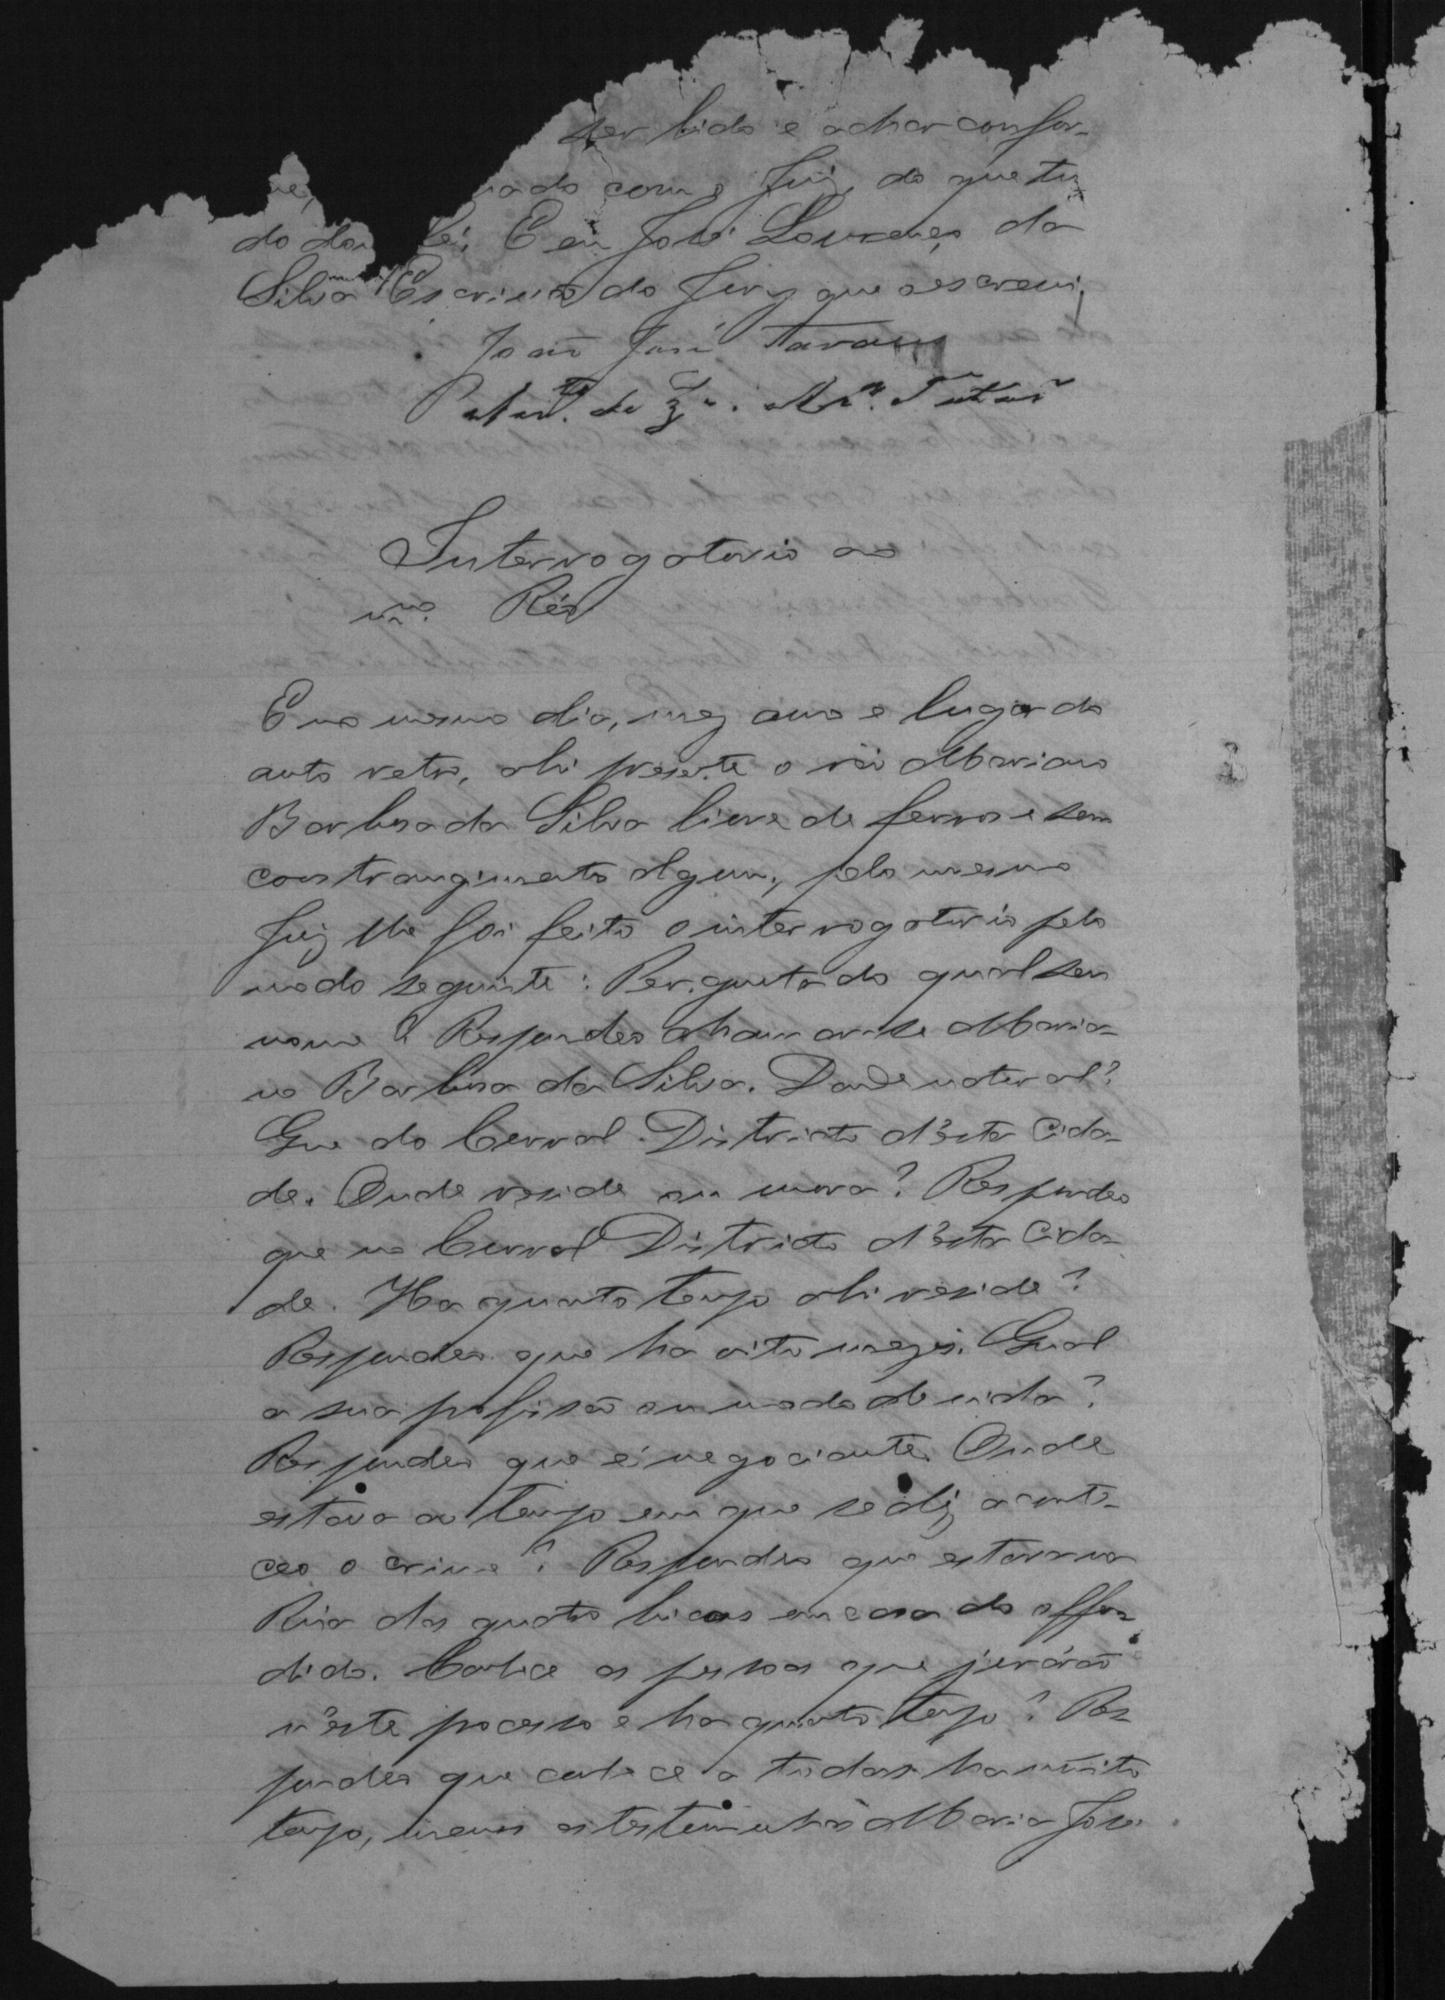 ser lido e achar confor-
me, nado com o Juiz, do que tu
do dou fé. E eu José Lourenço da
Silva Escrivão do Jury que o escrevi,
João José Tavares
Interrogatorio ao
mmo. Réo
E no mesmo dia, mez anno e lugar do
auto retro, ahi presente o réo Mariano
Barbosa da Silva livre de ferros e sem
constrangimento algum, pelo mesmo
Juiz lhe foi feito o interrogatorio pelo
modo seguinte: Perguntado qual seu
nome? Respondeo chamar-se Maria-
no Barbosa da Silva. Donde natural?
Que do Curral Districto d'esta Cida-
de. Onde reside ou mora? Respondeo
que no Curral Districto d'esta Cida-
de. Ha quanto tempo ahi reside?
Respondeo que ha oito mezes. Qual
a sua profissão ou modo de vida?
Respondeo que é negociante. Onde
estava ao tempo em que se diz aconte-
ceo o crime? Respondeo que estava na
Rua das quatro bicas em casa do offen-
dido. Conhece as pessoas que jurárão
n'este pocesso e ha quanto tempo? Res-
pondeo que conhece a todas ha muito
tempo, menos as testemunhas Maria José